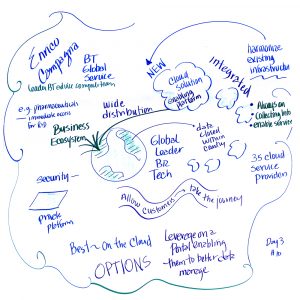 Enrico
Campagna
BT
Global
Service
Leader BT advise compute team
e.g. pharmaceuticals
immediate access
for R&D
Business
Ecosystem
Wide
distribution
NEW
Cloud
solution
Enabling
platform
Integrated
harmonize
existing
infrastructure
• Always on
• Collecting Info
• enable server
Global
Leader
BIZ
Tech
data
closed
within
country
35 cloud
service
providers
security
private
platform
Allow customers take the journey
Best ~ On the Cloud
OPTIONS
Leverage on a
Portal enabling
them to better data
manage
Day 3
#10